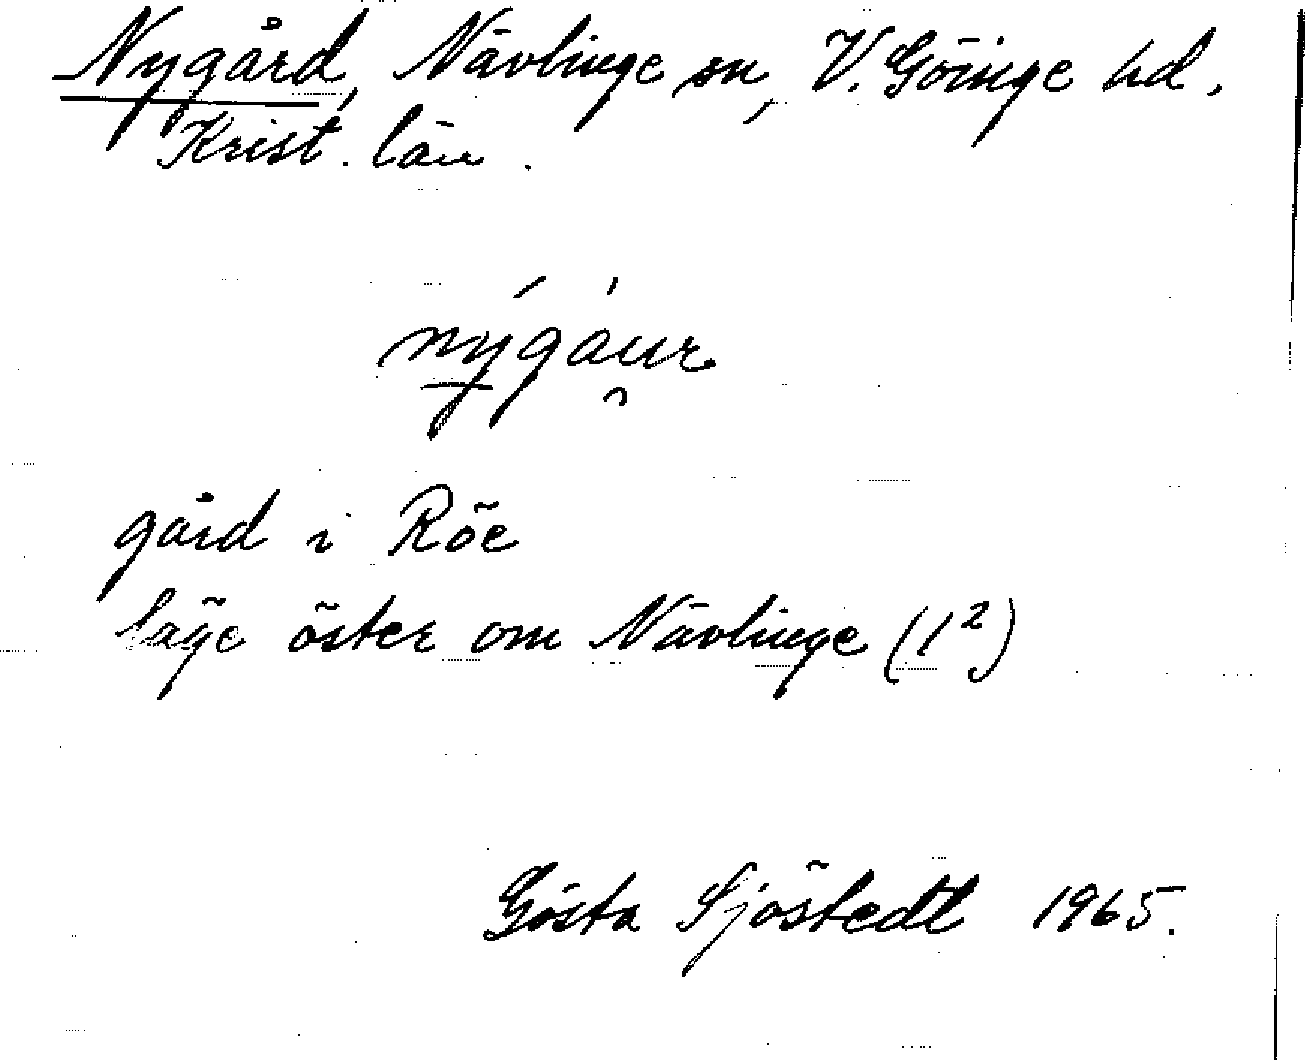 Nygård, Nävlinge sn, V. Göinge hd.
Krist. län.
nýgáur
gård i Röe
läge öster om Nävlinge (1²)
Gösta Sjöstedt 1965.